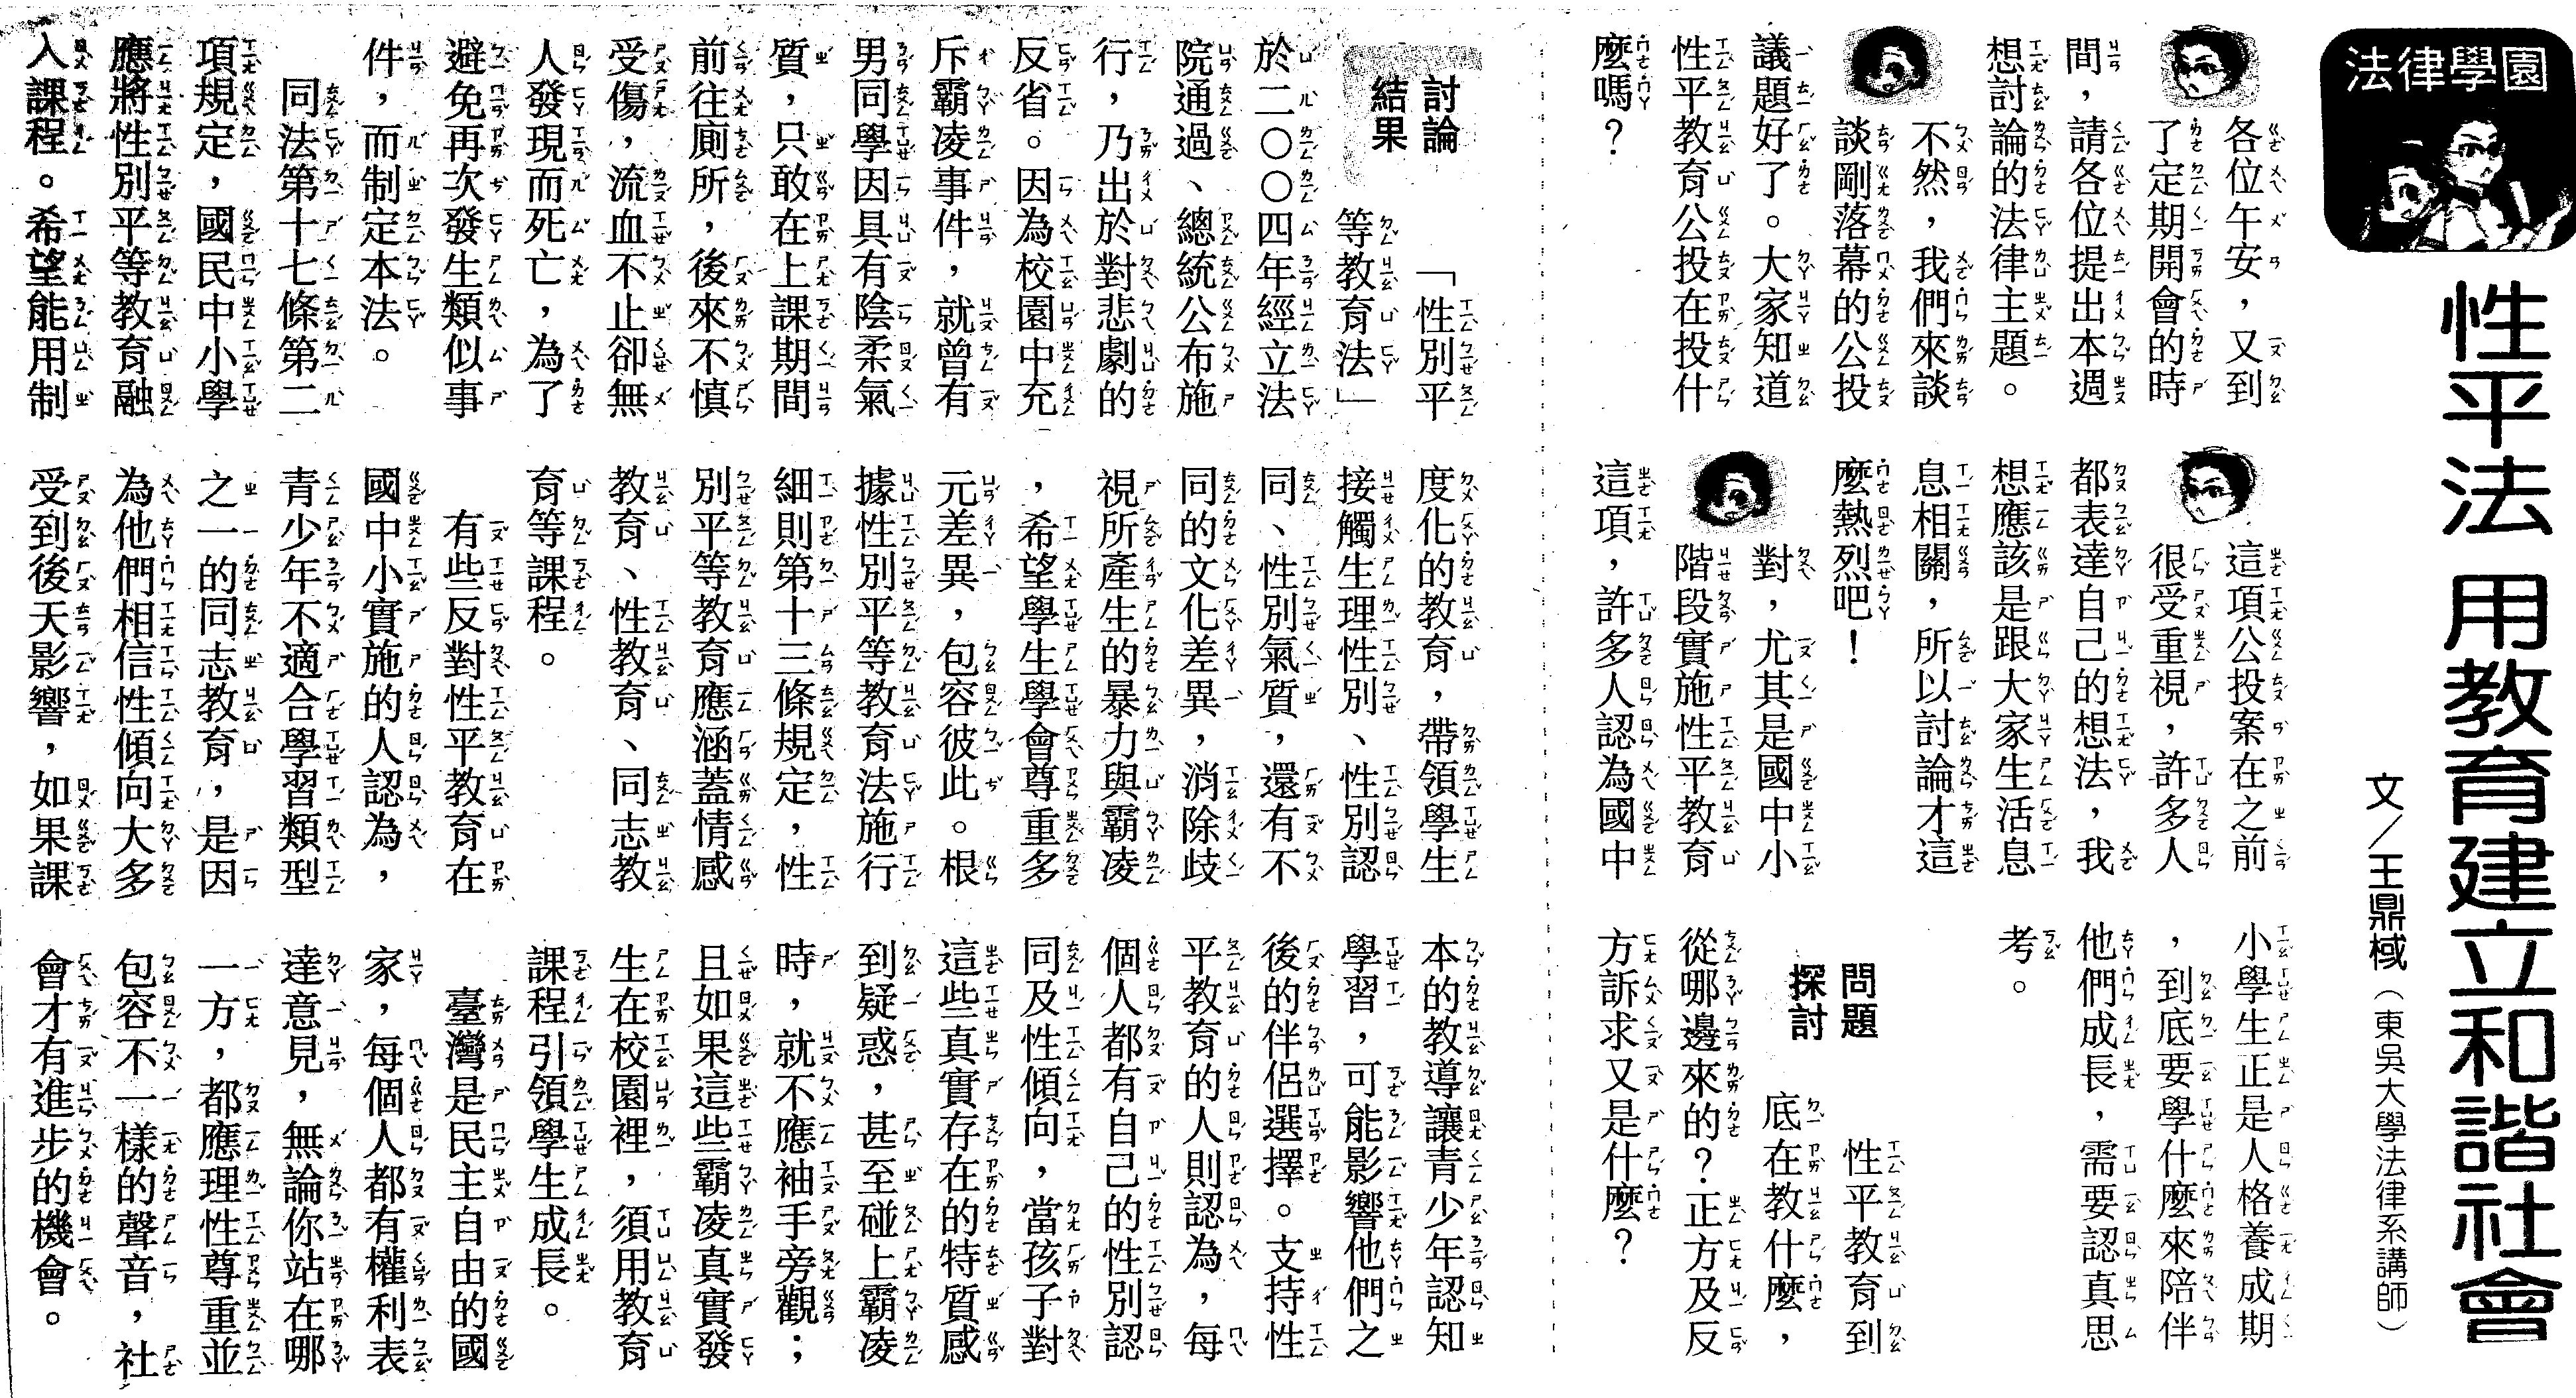 法律學園
性平法 用教育建立和諧社會
文／王鼎棫（東吳大學法律系講師）
各位午安，又到
了定期開會的時
間，請各位提出本週
想討論的法律主題。
不然，我們來談
談剛落幕的公投
議題好了。大家知道
性平教育公投在投什
麼嗎？
這項公投案在之前
很受重視，許多人
都表達自己的想法，我
想應該是跟大家生活息
息相關，所以討論才這
麼熱烈吧！
對，尤其是國中小
階段實施性平教育
這項，許多人認為國中
小學生正是人格養成期
，到底要學什麼來陪伴
他們成長，需要認真思
考。
問題
探討
性平教育到
底在教什麼，
從哪邊來的？正方及反
方訴求又是什麼？
討論
結果
「性別平
等教育法」
於二〇〇四年經立法
院通過、總統公布施
行，乃出於對悲劇的
反省。因為校園中充
斥霸凌事件，就曾有
男同學因具有陰柔氣
質，只敢在上課期間
前往廁所，後來不慎
受傷，流血不止卻無
人發現而死亡，為了
避免再次發生類似事
件，而制定本法。
同法第十七條第二
項規定，國民中小學
應將性別平等教育融
入課程。希望能用制
度化的教育，帶領學生
接觸生理性別、性別認
同、性別氣質，還有不
同的文化差異，消除歧
視所產生的暴力與霸凌
，希望學生學會尊重多
元差異，包容彼此。根
據性別平等教育法施行
細則第十三條規定，性
別平等教育應涵蓋情感
教育、性教育、同志教
育等課程。
有些反對性平教育在
國中小實施的人認為，
青少年不適合學習類型
之一的同志教育，是因
為他們相信性傾向大多
受到後天影響，如果課
本的教導讓青少年認知
學習，可能影響他們之
後的伴侶選擇。支持性
平教育的人則認為，每
個人都有自己的性別認
同及性傾向，當孩子對
這些真實存在的特質感
到疑惑，甚至碰上霸凌
時，就不應袖手旁觀；
且如果這些霸凌真實發
生在校園裡，須用教育
課程引領學生成長。
臺灣是民主自由的國
家，每個人都有權利表
達意見，無論你站在哪
一方，都應理性尊重並
包容不一樣的聲音，社
會才有進步的機會。